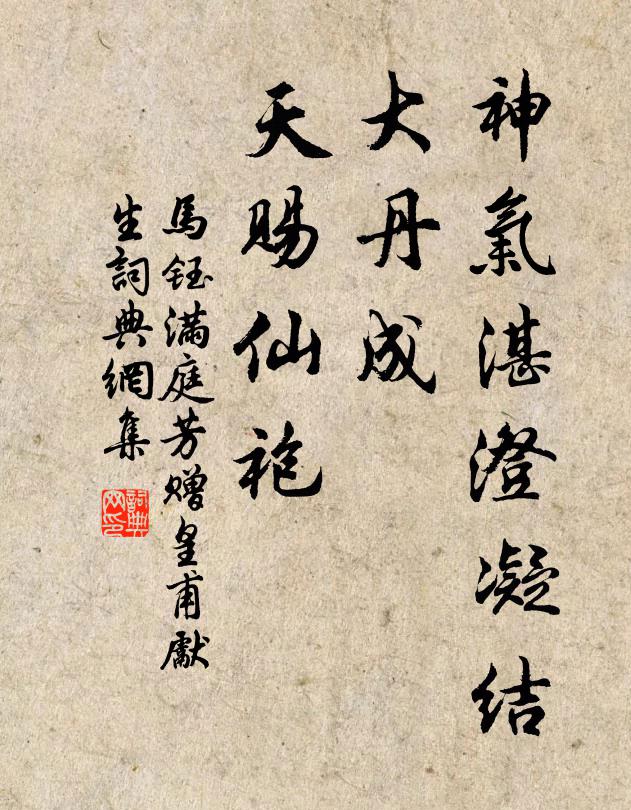 神氣湛澄凝結
大丹成
天賜仙袍
馬鈺滿庭芳贈皇甫獻
生詞典網集
詞典
网印